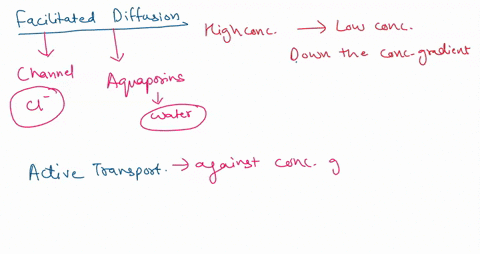 Facilitated Diffusion
High conc. → Low conc.
Down the conc-gradient
Channel
Aquaporins
Cl⁻
water
Active Transport. → against conc. g